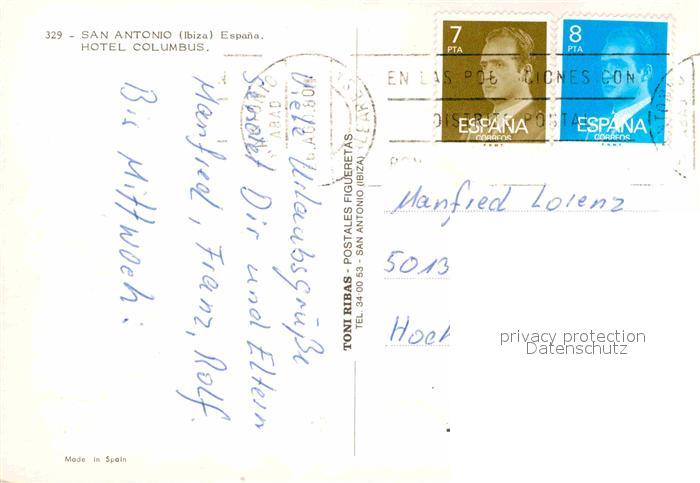 329 - SAN ANTONIO (Ibiza) España.
HOTEL COLUMBUS.
Viele Urlaubsgrüße
sendet Dir und Eltern
Manfred, Franz, Rolf.
Bis Mittwoch!
TONI RIBAS - POSTALES FIGUERETAS
TEL. 34 00 53 - SAN ANTONIO (IBIZA)
7
PTA
ESPAÑA
CORREOS
F.N.M.T.
8
PTA
ESPAÑA
CORREOS
F.N.M.T.
EN LAS POB CIONES CON
DISTRI POSTAL
Manfred Lorenz
5013
Hoch
privacy protection
Datenschutz
Made in Spain